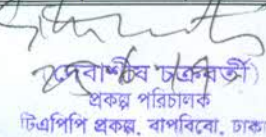 (দেবাশীষ চক্রবর্তী)
প্রকল্প পরিচালক
টিএপিপি প্রকল্প, বাপবিবো, ঢাকা